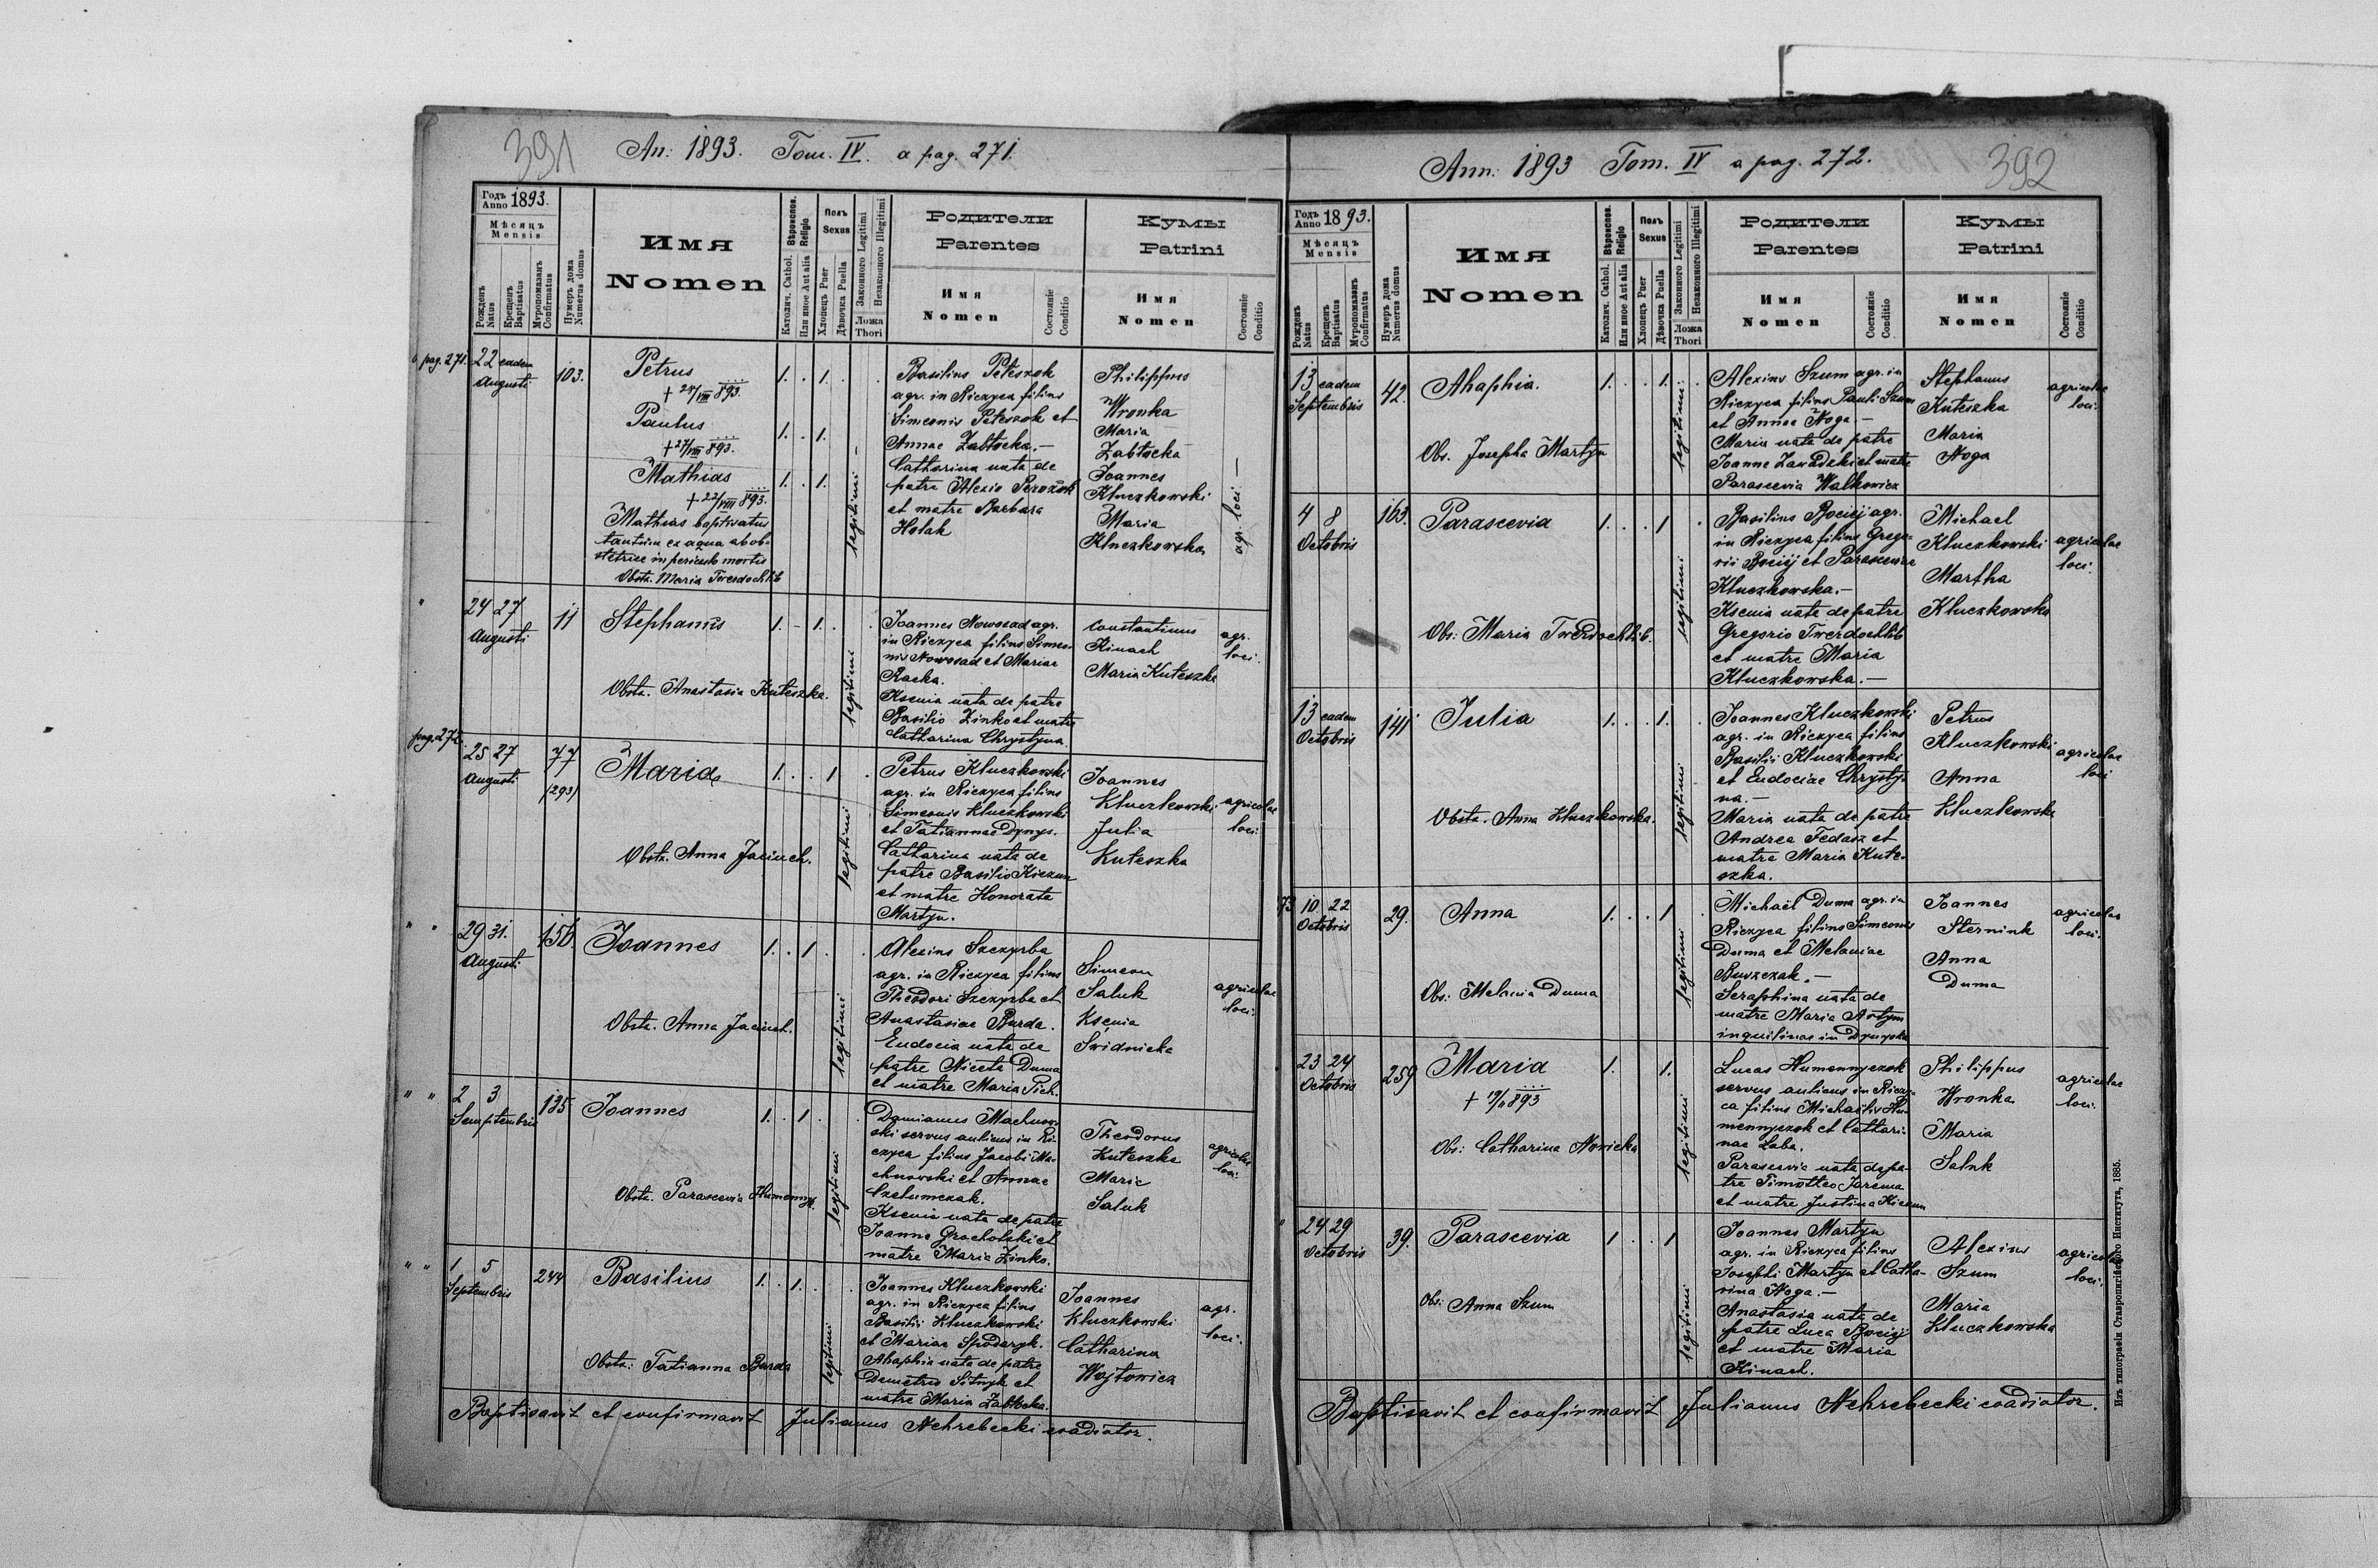 391
An: 1893. Tom. IV. a pag. 271.
Годъ Anno 1893.
Мѣсяцъ Mensis
Рожденъ Natus
Крещенъ Baptisatus
Мѵропомазанъ Confirmatus
Нумеръ дома Numerus domus
Имя
Nomen
Вѣроиспов. Religio
Католич. Cathol.
Или иное Aut alia
Полъ Sexus
Хлопецъ Puer
Дѣвочка Puella
Законного Legitimi
Незаконного Illegitimi
Ложа Thori
Родители
Parentes
Имя
Nomen
Состояніе Conditio
Кумы
Patrini
Имя
Nomen
Состояніе Conditio
pag. 271.
22 eadem
Augusti
103.
Petrus
Paulus
+ 27/VIII 893.
Mathias
+ 22/VIII 893.
Mathias baptisatus
tantum ex aqua ab ob-
stetrice in periculo mortis
Obstr. Maria Twerdochlib
1. . 1. .
1. . 1.
1. . 1.
legitimi
Basilius Peteszok
agr. in Riczyca filius
Simeonis Peteszok et
Annae Zabłocka. —
Catharina nata de
patre Alexio
et matre Barbara
Holak
Philippus
Wronka
Maria
Zabłocka
Joannes
Kluczkowski
Maria
Kluczkowska
agr. loci
24 27
Augusti
11
Stephanus
Obstr. Anastasia Kuteszka.
1. - 1. .
legitimi
Joannes Nowosad agr.
in Riczyca filius Simeo-
nis Nowosad et Mariae
Racka.
Ksenia nata de patre
Basilio Zinko et matre
Catharina Chrystyna.
Constantinus
Kinach
Maria Kuteszka
agr.
loci.
pag. 272
25 27
Augusti
77
(293)
Maria
Obstr. Anna Jacinch.
1. . . 1
legitimi
Petrus Kluczkowski
agr. in Riczyca filius
Simeonis Kluczkowski
et Tatiannae Dynys.
Catharina nata de
patre Basilio Kiczun
et matre Honorata
Martyn.
Joannes
Kluczkowski
Julia
Kuteszka
agricolae
loci.
29 31.
Augusti
156
Joannes
Obstr. Anna Jacinch.
1. . 1 .
legitimi
Alexius Szczyrba
agr. in Riczyca filius
Theodori Szczyrba et
Anastasiae Burda.
Eudocia nata de
patre Niceta Duma
et matre Maria Pich.
Simeon
Saluk
Ksenia
Swidnicka
agricolae
loci.
2 3
Septembris
135
Joannes
Obstr. Parascevia
1. . 1 .
legitimi
Damianus Machnow-
ski servus aulicus in Ri-
czyca filius Jacobi Ma-
chnowski et Annae
Ksenia nata de patre
Joanne Grocholski et
matre Maria Zinko.
Theodorus
Kuteszka
Maria
Saluk
agricolae
loci.
1 5
Septembris
244
Basilius
Obstr: Tatianna Burda
1. . 1. .
legitimi
Joannes Kluczkowski
agr. in Riczyca filius
Basilii Kluczkowski
et Mariae Spodaryk.
Ahaphia nata de patre
Demetrio Sitnyk et
matre Maria Zabłocka.
Joannes
Kluczkowski
Catharina
Wojtowicz
agr.
loci.
Baptisavit et confirmavit Julianus Nehrebecki coadiator.
392
Ann: 1893 Tom. IV a pag. 272.
Годъ Anno 1893.
Мѣсяцъ Mensis
Рожденъ Natus
Крещенъ Baptisatus
Мѵропомазанъ Confirmatus
Нумеръ дома Numerus domus
Имя
Nomen
Вѣроиспов. Religio
Католич. Cathol.
Или иное Aut alia
Полъ Sexus
Хлопецъ Puer
Дѣвочка Puella
Законного Legitimi
Незаконного Illegitimi
Ложа Thori
Родители
Parentes
Имя
Nomen
Состояніе Conditio
Кумы
Patrini
Имя
Nomen
Состояніе Conditio
13 eadem
Septembris
42.
Ahaphia.
Obs. Josepha Martyn
1. . . 1.
legitimi
Alexius Szum agr. in
Riczyca filius Pauli Szum
et Annae Noga. —
Maria nata de patre
Joanne Zawadzki et matre
Parascevia Walkowicz
Stephanus
Kuteszka
Maria
Noga
agricolae
loci.
4 8
Octobris
163.
Parascevia
Obs: Maria Twerdochlib.
1. . . 1
legitimi
Basilius Bociij agr.
in Riczyca filius Grego-
rii Bociij et Parasceviae
Kluczkowska. —
Ksenia nata de patre
Gregorio Twerdochlib
et matre Maria
Kluczkowska. —
Michael
Kluczkowski
Martha
Kluczkowska
agricolae
loci.
13 eadem
Octobris
141
Julia
Obstr. Anna Kluczkowska.
1. . . 1.
legitimi
Joannes Kluczkowski
agr. in Riczyca filius
Basilii Kluczkowski
et Eudociae Chrysty-
na. —
Maria nata de patre
Andrea Fedasz et
matre Maria Kute-
szka.
Petrus
Kluczkowski
Anna
Kluczkowska
agricolae
loci
10 22
Octobris
29.
Anna
Obs: Melania Duma
1. . . 1
legitimi
Michaël Duma agr. in
Riczyca filius Simeonis
Duma et Melaniae
Seraphina nata de
matre Maria Artym
inquilinae in Dynyska
Joannes
Sternink
Anna
Duma
agricolae
loci.
23 24
Octobris
259
Maria
Obs: Catharina Nowicka
1. 1.
legitimi
Lucas Humennyczok
servus aulicus in Riczy-
ca filius Michaëlis Hu-
mennyczok et Cathari-
nae Laba.
Parascevia nata de pa-
tre Timotheo Jarema
et matre Justina Kiczun
Philippus
Wronka
Maria
Saluk
agricolae
loci.
24 29
Octobris
39.
Parascevia
Obs: Anna Szum
1 . . 1
legitimi
Joannes Martyn
agr. in Riczyca filius
Josephi Martyn et Catha-
rina Noga. —
Anastasia nata de
patre Luca Bociij
et matre Maria
Kinach.
Alexius
Szum
Maria
Kluczkowska
agricolae
loci.
Baptisavit et confirmavit Julianus Nehrebecki coadiator.
Изъ типографіи Ставропигійского Института, 1885.